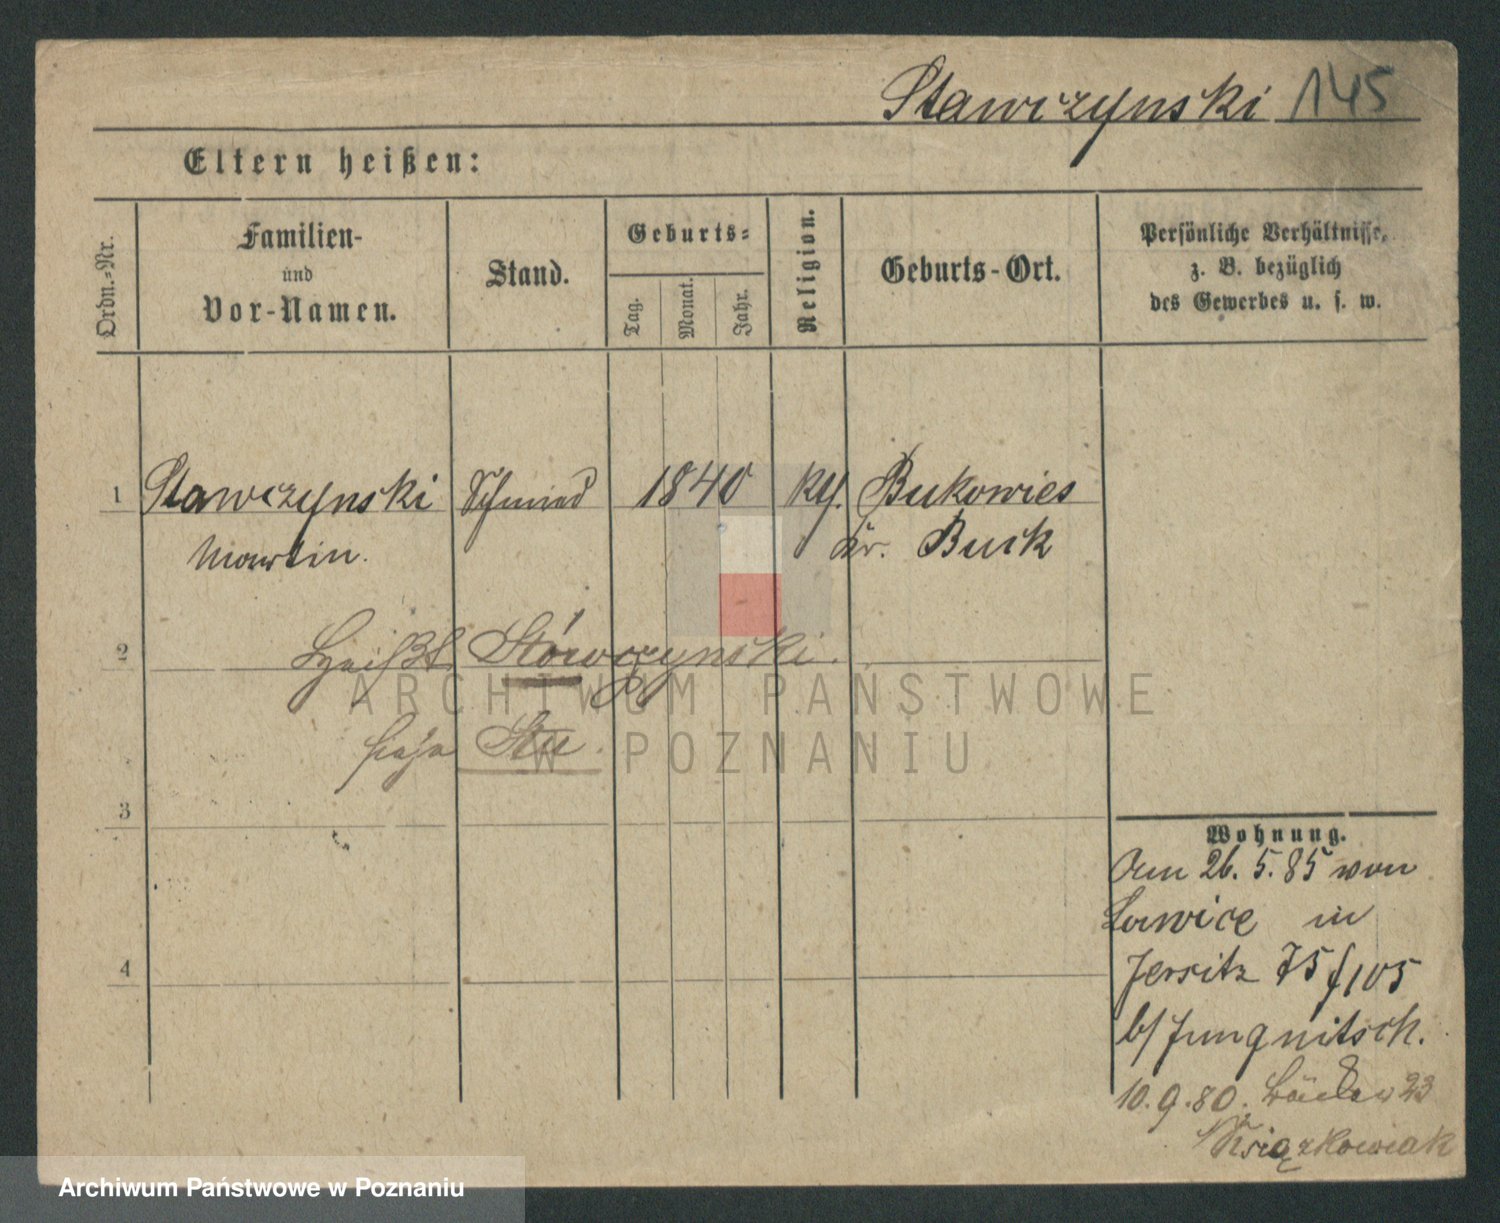 Stawczynski 145
Eltern heißen:
Ordn.-Nr.
Familien-
und
Vor-Namen.
Stand.
Geburts-
Tag.
Monat.
Jahr.
Religion.
Geburts-Ort.
Persönliche Verhältnisse,
z. B. bezüglich
des Gewerbes u. s. w.
1 Stawczynski Schmied 1840 Bukowies
Martin. Kr. Buck
2
Stu
3
4
Wohnung.
Am 26.5.85 von
Lawice in
Jersitz 75/105
b/ Jungnitsch.
10.9.80. 23
Książkowiak
ARCHIWUM PAŃSTWOWE
W POZNANIU
Archiwum Państwowe w Poznaniu